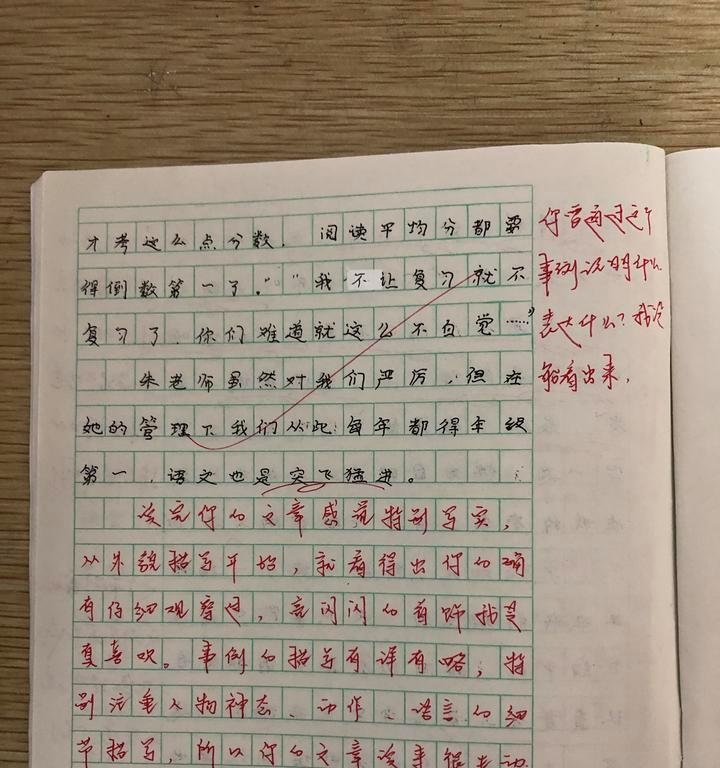 才考这么点分数。阅读平均分都要
得倒数第一了。""我不让复习就不
复习了,你们难道就这么不自觉……"
朱老师虽然对我们严厉,但在
她的管理下我们从此每年都得年级
第一,语文也是突飞猛进。
你冒通过这个
事例说明什么
表达什么?我没
能看出来,
读完你的文章感觉特别写实,
从外貌描写开始,就看得出你的确
有仔细观察过,亮闪闪的首饰我是
真喜欢。事例的描写有详有略,特
别注重人物神态、动作、语言的细
节描写,所以你的文章读来很生动